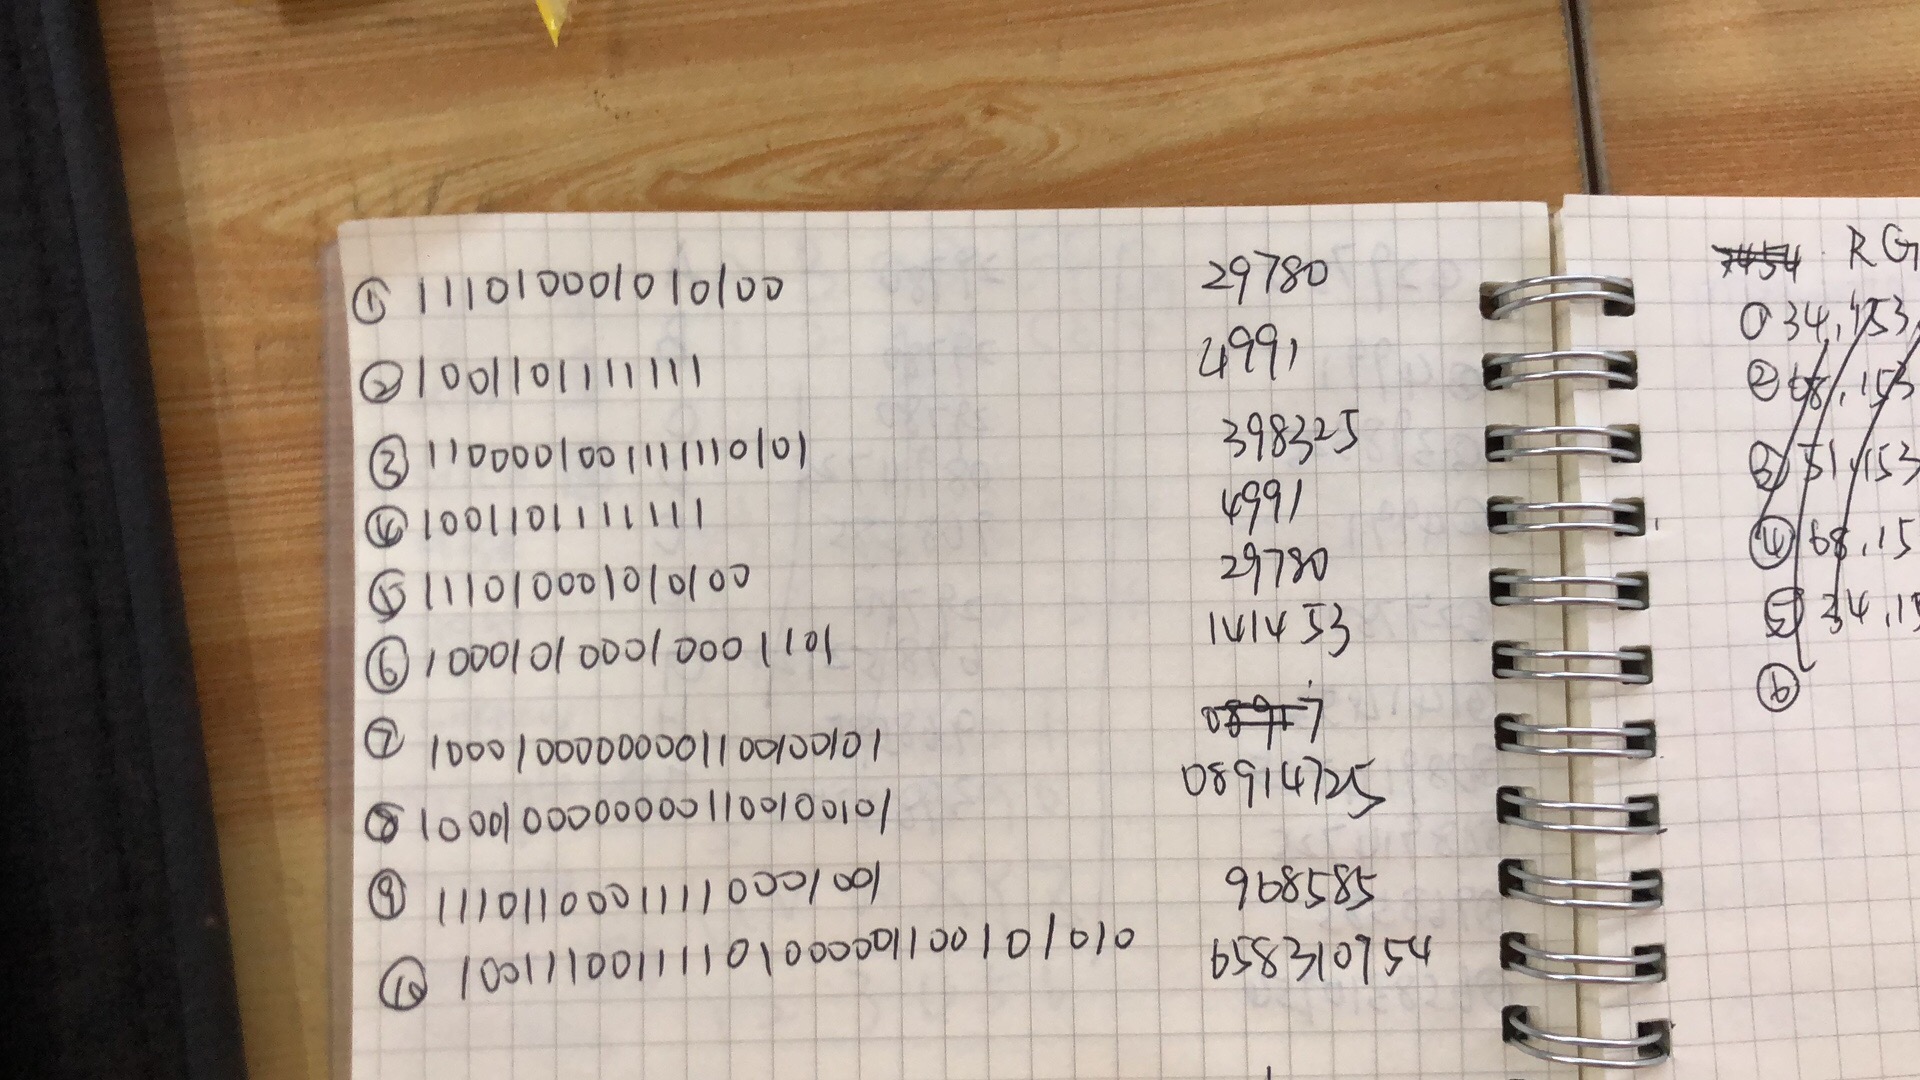 ① 111010001010100 29780
② 1001101111111 4991
③ 1100001001111110101 398325
④ 1001101111111 4991
⑤ 111010001010100 29780
⑥ 100010100010001101 141453
⑦ 10001000000001100100101
08914725
⑧ 10001000000001100100101
⑨ 11101100011110001001 968585
⑩ 100111001111010000011001010 10 658310954
RG
① 34,153,
② 68,153
③ 51,153
④ 68,15
⑤ 34,15
⑥